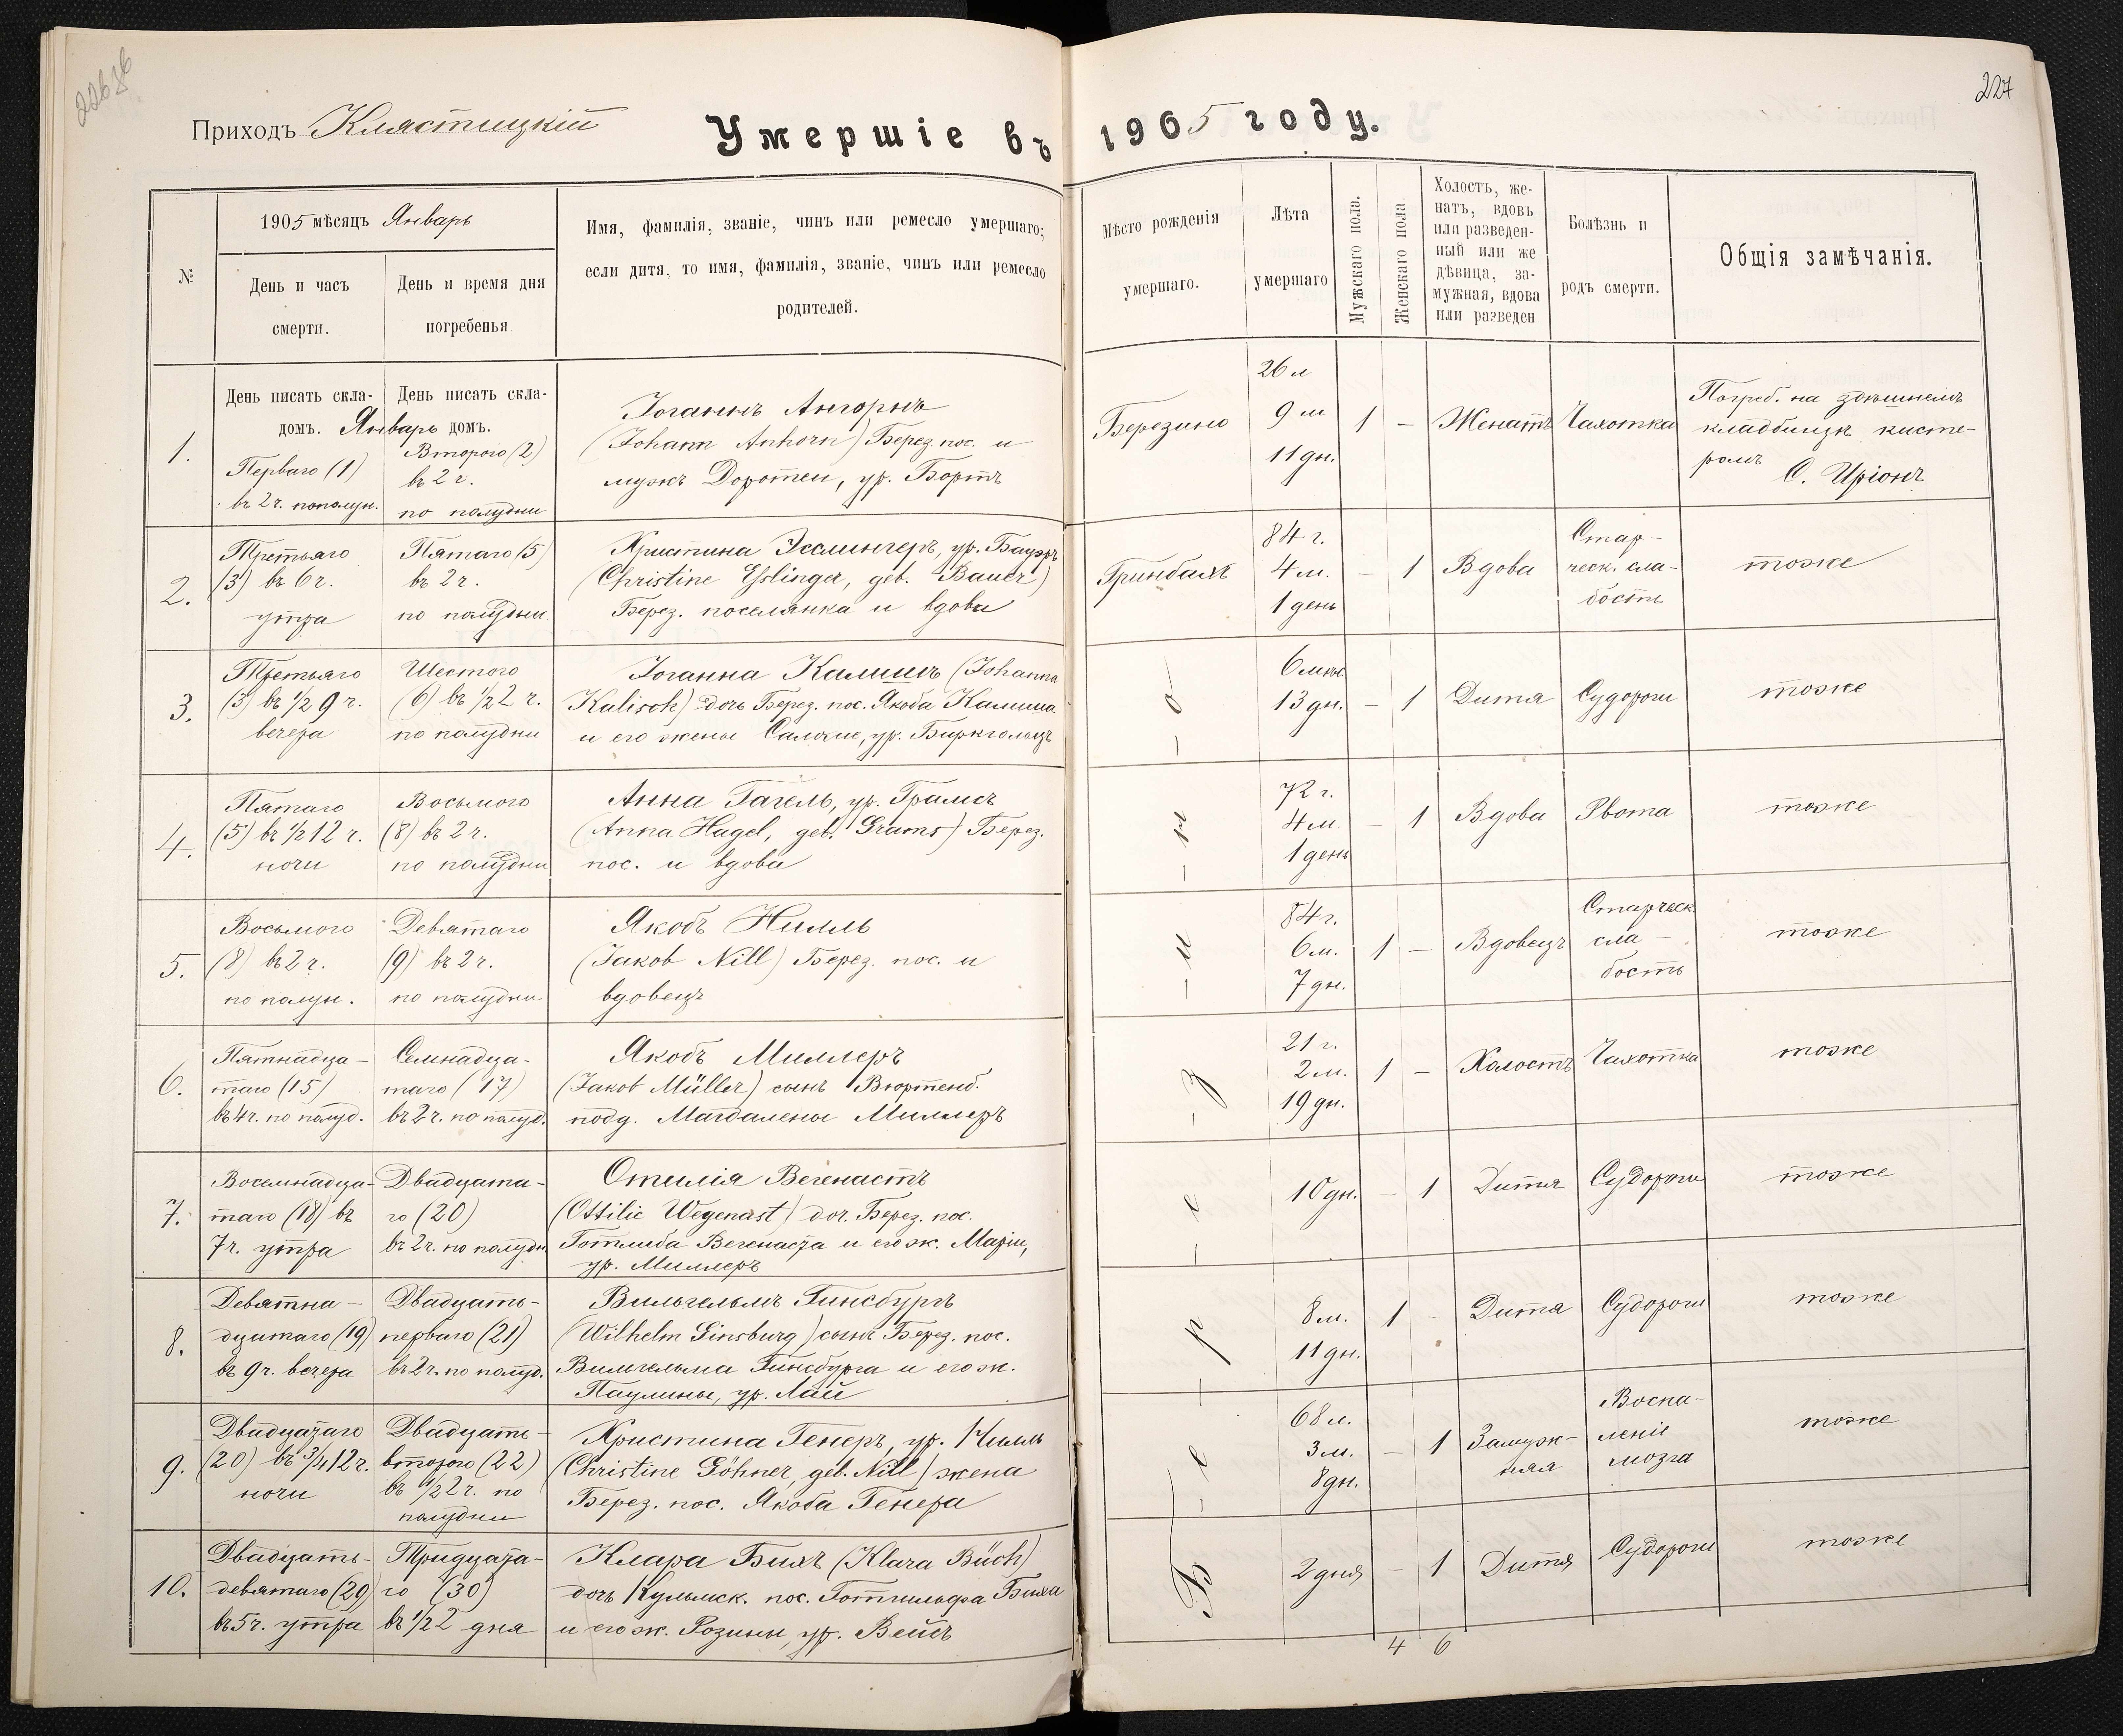 226 об
227
Приходъ Клястицкій
Умершіе въ 1905 году.
№
1905 мѣсяцъ Январь
День и часъ
смерти.
День и время дня
погребенья.
Имя, фамилія, званіе, чинъ или ремесло умершаго;
если дитя, то имя, фамилія, званіе, чинъ или ремесло
родителей.
Мѣсто рожденія
умершаго.
Лѣта
умершаго
Мужскаго пола.
Женскаго пола.
Холостъ, же-
натъ, вдовъ
или разведен-
ный или же
дѣвица, за-
мужная, вдова
или разведен
Болѣзнь и
родъ смерти.
Общія замѣчанія.
1.
День писать скла-
домъ. Январь
Перваго (1)
въ 2 ч. пополуд.
День писать скла-
домъ.
Второго (2)
въ 2 ч.
по полудни
Іоганнъ Ангорнъ
(Johann Anhorn) Берез. пос. и
мужъ Доротеи, ур. Бортъ
Березино
26 л
9 м
11 дн.
1
-
Женатъ
Чахотка
Погреб. на здѣшнемъ
кладбищѣ кисте-
ромъ
О. Иріонъ
2.
Третьяго
(3) въ 6 ч.
утра
Пятаго (5)
въ 2 ч.
по полудни
Христина Эсслингеръ, ур. Бауэръ
(Christine Esslinger, geb. Bauer)
Берез. поселянка и вдова
Гринбахъ
84 г.
4 м.
1 день
-
1
Вдова
Стар-
ческ. сла-
бость
тоже
3.
Третьяго
(3) въ 1/2 9 ч.
вечера
Шестого
(6) въ 1/2 2 ч.
по полудни
Іоганна Калишъ (Johanna
Kalisch) дочь Берез. пос. Якоба Калиша
и его жены Саломе, ур. Биркгольцъ
- о
6 мѣс.
13 дн.
-
1
Дитя
Судороги
тоже
4.
Пятаго
(5) въ 1/2 12 ч.
ночи
Восьмого
(8) въ 2 ч.
по полудни
Анна Гагель, ур. Грамсъ
(Anna Hagel, geb. Grams) Берез.
пос. и вдова
- н
72 г.
4 м.
1 день
-
1
Вдова
Рвота
тоже
5.
Восьмого
(8) въ 2 ч.
по полун.
Девятаго
(9) въ 2 ч.
по полудни
Якобъ Нилль
(Jakob Nill) Берез. пос. и
вдовецъ
- и
84 г.
6 м.
7 дн.
1
-
Вдовецъ
Старческ.
сла-
бость
тоже
6.
Пятнадца-
таго (15)
въ 4 ч. по полуд.
Семнадца-
таго (17)
въ 2 ч. по полуд.
Якобъ Миллеръ
(Jakob Müller) сынъ Вюртенб.
подд. Магдалены Миллеръ
- з
21 г.
2 м.
19 дн.
1
-
Холостъ
Чахотка
тоже
7.
Восемнадца-
таго (18) въ
7 ч. утра
Двадцата-
го (20)
въ 2 ч. по полудн.
Отилія Вегенастъ
(Ottilie Wegenast) доч. Берез. пос.
Готлиба Вегенаста и его ж. Маріи,
ур. Миллеръ
- е
10 дн.
-
1
Дитя
Судороги
тоже
8.
Девятна-
дцатаго (19)
въ 9 ч. вечера
Двадцать-
перваго (21)
въ 2 ч. по полуд.
Вильгельмъ Гинсбургъ
(Wilhelm Ginsburg) сынъ Берез. пос.
Вильгельма Гинсбурга и его ж.
Паулины, ур. Лай
- р
8 м.
11 дн.
1
-
Дитя
Судороги
тоже
9.
Двадцатаго
(20) въ 3/4 12 ч.
ночи
Двадцать-
второго (22)
въ 1/2 2 ч. по
полудни
Христина Генеръ, ур. Нилль
(Christine Göhner, geb. Nill) жена
Берез. пос. Якоба Генера
- е
68 л.
3 м.
8 дн.
-
1
Замуж-
няя
Воспа-
леніе
мозга
тоже
10.
Двадцать-
девятаго (29)
въ 5 ч. утра
Тридцата-
го (30)
въ 1/2 2 дня
Клара Бихъ (Klara Büch)
дочь Кульмск. пос. Готгильфа Биха
и его ж. Розины, ур. Вейсъ
Б
2 дня
-
1
Дитя
Судороги
тоже
4 6